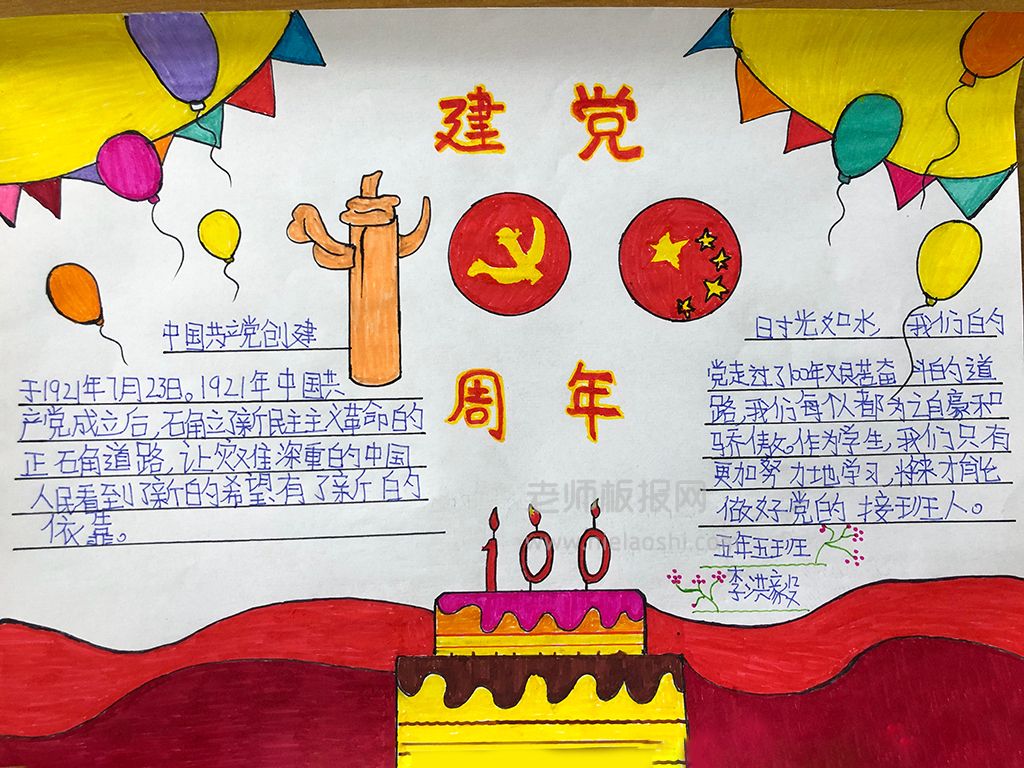 建党
周年
100
中国共产党创建
于1921年7月23日。1921年中国共
产党成立后，石角立了新民主主义革命的
正石角道路，让灾难深重的中国
人民看到了新的希望，有了新的
依靠。
时光如水，我们的
党走过了100年艰苦奋斗的道
路，我们每个人都为之自豪和
骄傲。作为学生，我们只有
更加努力地学习，将来才能
做好党的接班人。
五年五班
李洪毅
老师板报网